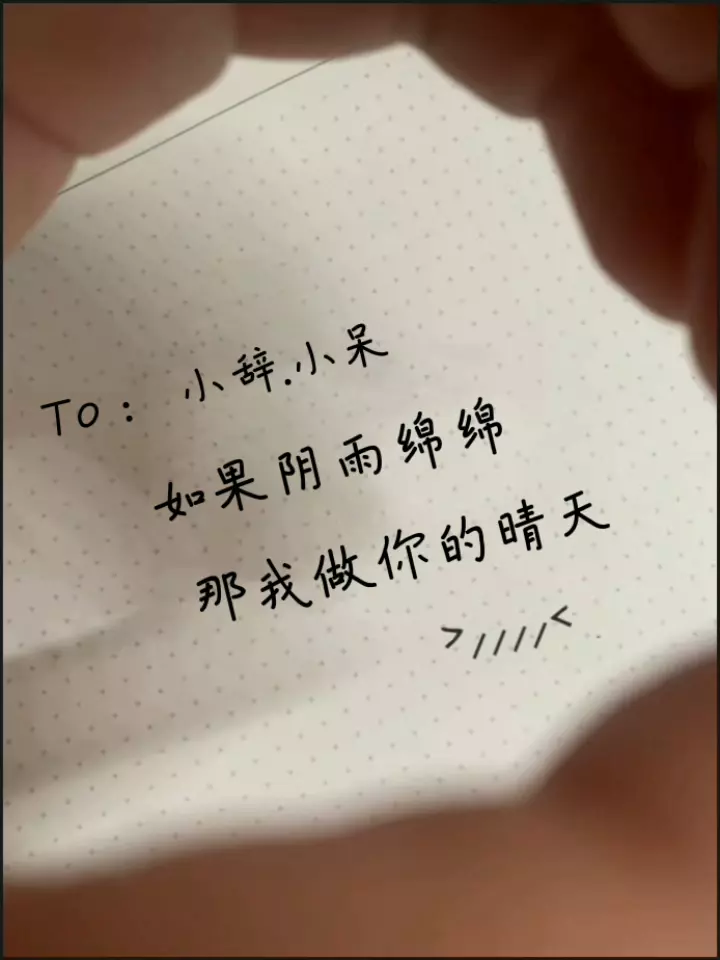 To: 小辞.小呆
如果阴雨绵绵
那我做你的晴天
>////<